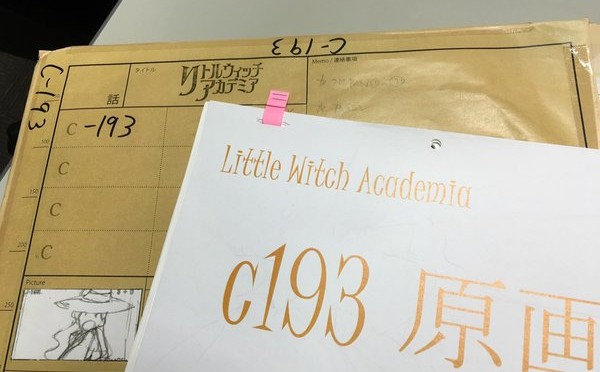 C-193
C-193
話
タイトル
リトルウィッチ
アカデミア
Memo / 連絡事項
C-193
C
C
C
100
150
200
250
Picture
Little Witch Academia
c193 原画